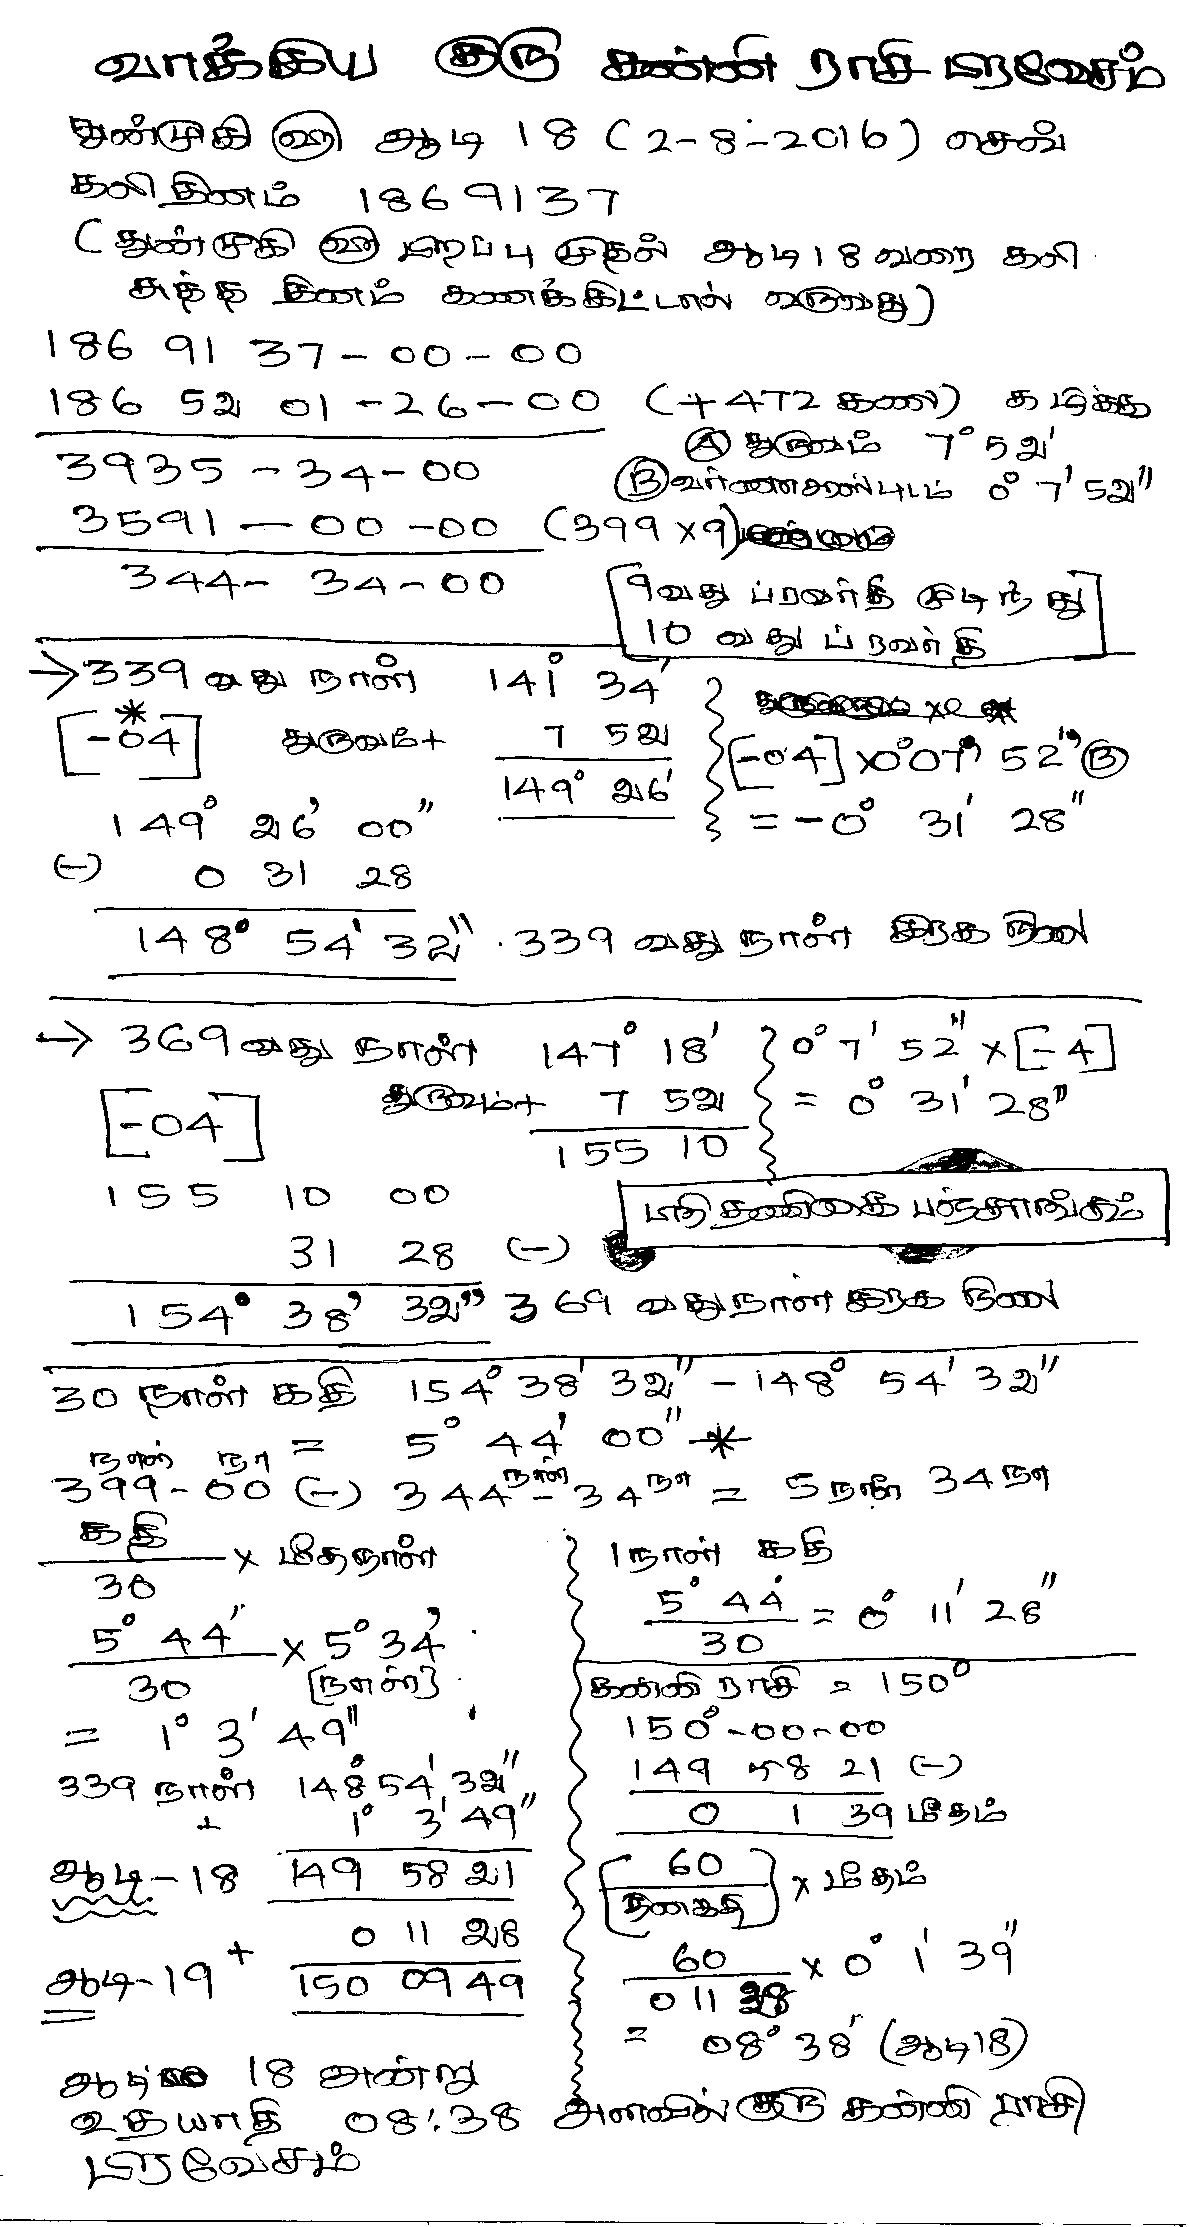 வாக்கிய குரு கன்னி ராசி பிரவேசம்
துன்முகி ௵ ஆடி 18 (2-8-2016) செவ்
கலிதினம் 1869137
(துன்முகி ௵ பிறப்பு முதல் ஆடி 18 வரை கலி
சுத்த தினம் கணக்கிட்டால் வருவது)
186 91 37-00-00
186 52 01-26-00 (+472 கண்டி) கழிக்க
3935-34-00 Ⓐ துருவம் 7° 52'
Ⓑ 0° 7' 52"
3591-00-00 (399×9)
344-34-00
[9வது ப்ரவர்தி முடிந்து
10 வது ப்ரவர்தி]
→339 வது நாள் 141° 34'
[-04]* துருவம்+ 7 52
149° 26'
[-04]×0°07' 52" Ⓑ
= -0° 31' 28"
149° 26' 00"
(-) 0 31 28
148° 54' 32" 339 வது நாள் கிரக நிலை
→ 369 வது நாள் 147° 18'
[-04] துருவம்+ 7 52
155 10
0° 7' 52" × [-4]
= 0° 31' 28"
155 10 00
31 28 (-)
பாதி தணிகை பஞ்சாங்கம்
154° 38' 32" 369 வது நாள் கிரக நிலை
30 நாள் கதி 154° 38' 32" - 148° 54' 32"
= 5° 44' 00" *
நாள் நா
399-00 (-) 344 நாள் - 34 நா = 5 நாள் 34 நா
கதி/30 × மீதநாள்
5° 44'/30 × 5° 34'
= 1° 3' 49"
339 நாள் 148° 54' 32"
+ 1° 3' 49"
ஆடி-18 149 58 21
+ 0 11 28
ஆடி-19 150 09 49
1 நாள் கதி
5° 44'/30 = 0° 11' 28"
கன்னி ராசி = 150°
150°-00-00
149 58 21 (-)
0 1 39 மீதம்
[60/தினகதி] × மீதம்
60/0 11 28 × 0° 1' 39"
= 08° 38' (ஆடி 18)
ஆடி 18 அன்று
உதயாதி 08:38 அளவில் குரு கன்னி ராசி
பிரவேசம்